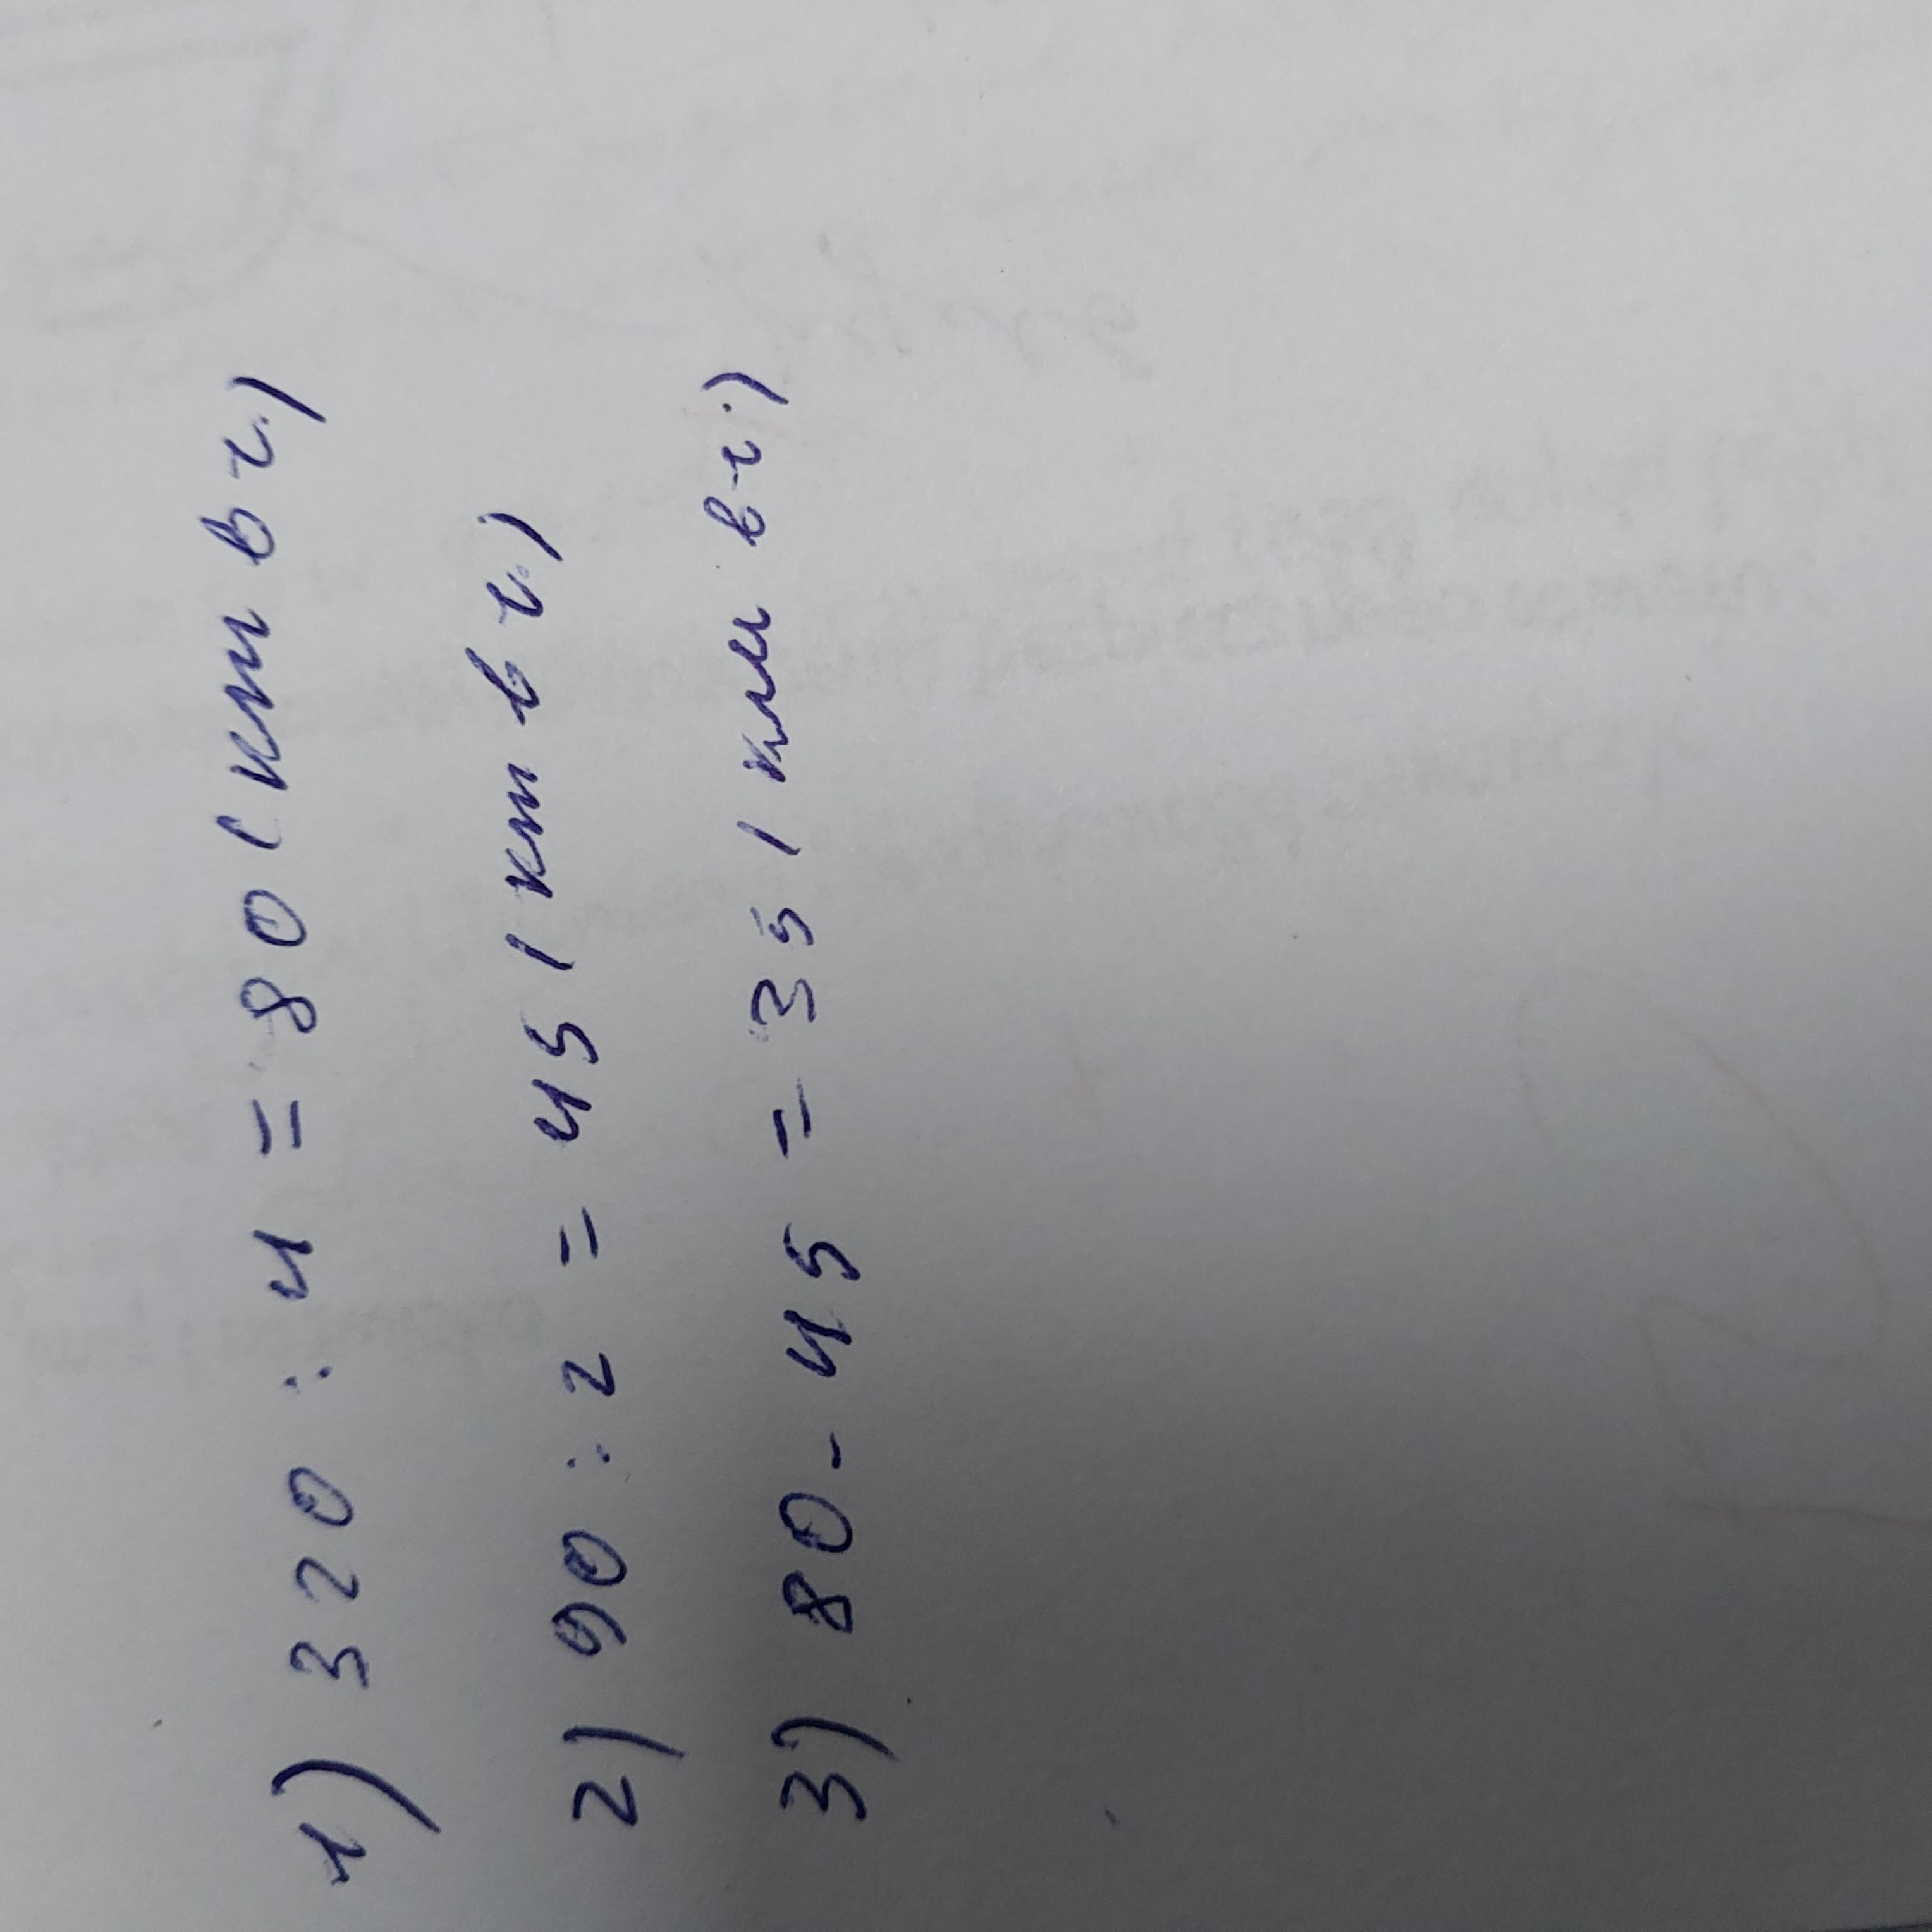 1) 320 : 4 = 80 (км в ч.)
2) 90 : 2 = 45 (км в ч.)
3) 80 - 45 = 35 (км в ч.)